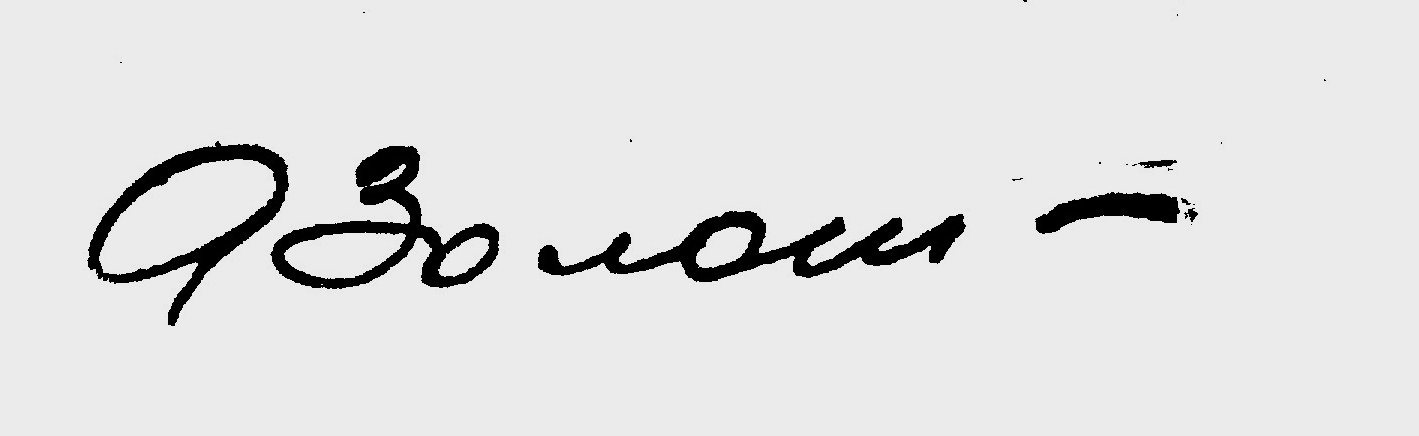 ЯЗолот-